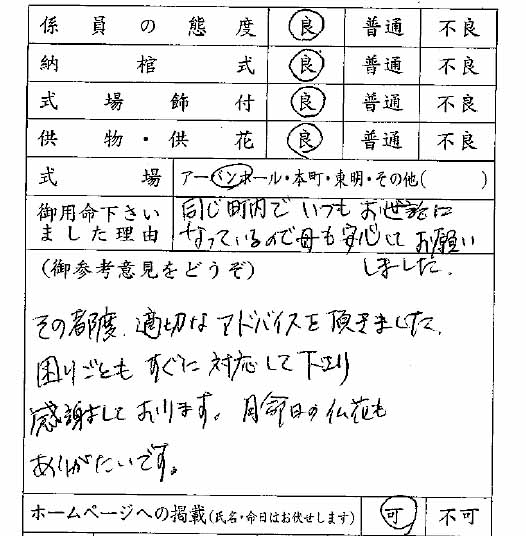 係員の態度 良 普通 不良
納棺式 良 普通 不良
式場飾付 良 普通 不良
供物・供花 良 普通 不良
式場 アーバンホール・本町・東明・その他( )
御用命下さいました理由 同じ町内でいつもお世話に
なっているので母も安心してお願い
しました。
(御参考意見をどうぞ)
その都度、適切なアドバイスを頂きました。
困りごともすぐに対応して下さり
感謝しております。月命日の仏花も
ありがたいです。
ホームページへの掲載(氏名・命日はお伏せします) 可 不可